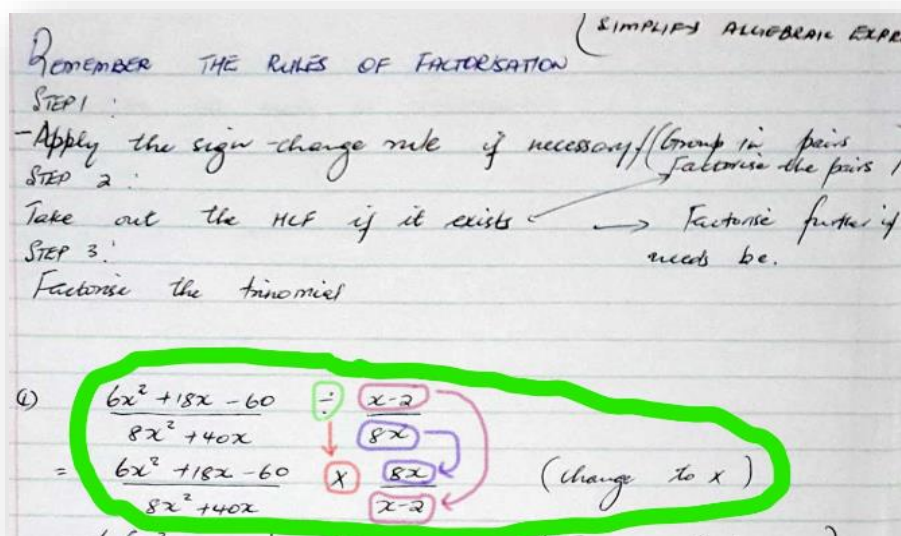 (SIMPLIFY ALGEBRAIC EXPR
REMEMBER THE RULES OF FACTORISATION
STEP 1 :
- Apply the sign-change rule if necessary / (Group in pairs
Factorise the pairs /
STEP 2 :
Take out the HCF if it exists → Factorise further if
needs be.
STEP 3 :
Factorise the trinomial
(1) (6x² + 18x - 60)/(8x² + 40x) ÷ (x-2)/(8x)
= (6x² + 18x - 60)/(8x² + 40x) × (8x)/(x-2) (change to x)